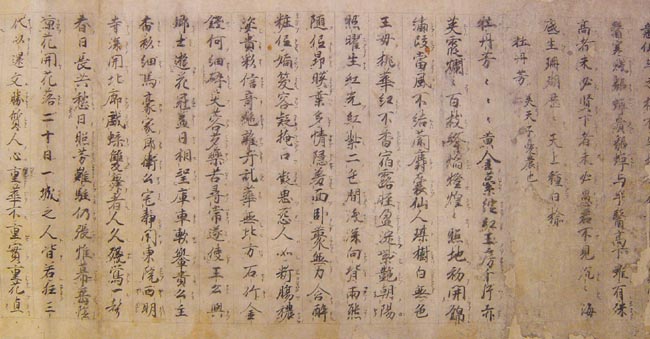 醫寒賤貂蟬貴貂蟬與牛醫高下雖有殊
高者未必賢下者未必愚君不見沉〻海
底生珊瑚歷〻天上種白榆
牡丹芳 美天子憂農也
牡丹芳〻〻〻黃金蘂綻紅玉房千片赤
英霞爛〻百枝絳焰燈煌〻照地初開錦
繡段當風不結蘭麝囊仙人琪樹白無色
王母桃華紅不香宿露輕盈泛紫艷朝陽
照曜生紅光紅紫二色間深淺向背萬態
隨低昂映葉多情隱羞面臥叢無力含醉
粧低嬌笑容疑掩口凝思怨人如斷腸穠
姿貴彩信奇絕雜卉亂華無比方石竹金
錢何細碎芙蓉芍藥苦尋常遂使王公與
卿士遊花冠蓋日相望庫車軟輿貴公主
香衫細馬豪家郎衛公宅靜閉東院西明
寺深開北廊戲蝶雙舞看人久殘鶯一聲
春日長共愁日照芳難駐仍張帷幕垂陰
涼花開花落二十日一城之人皆若狂三
代以還文勝質人心重華不重實重花直